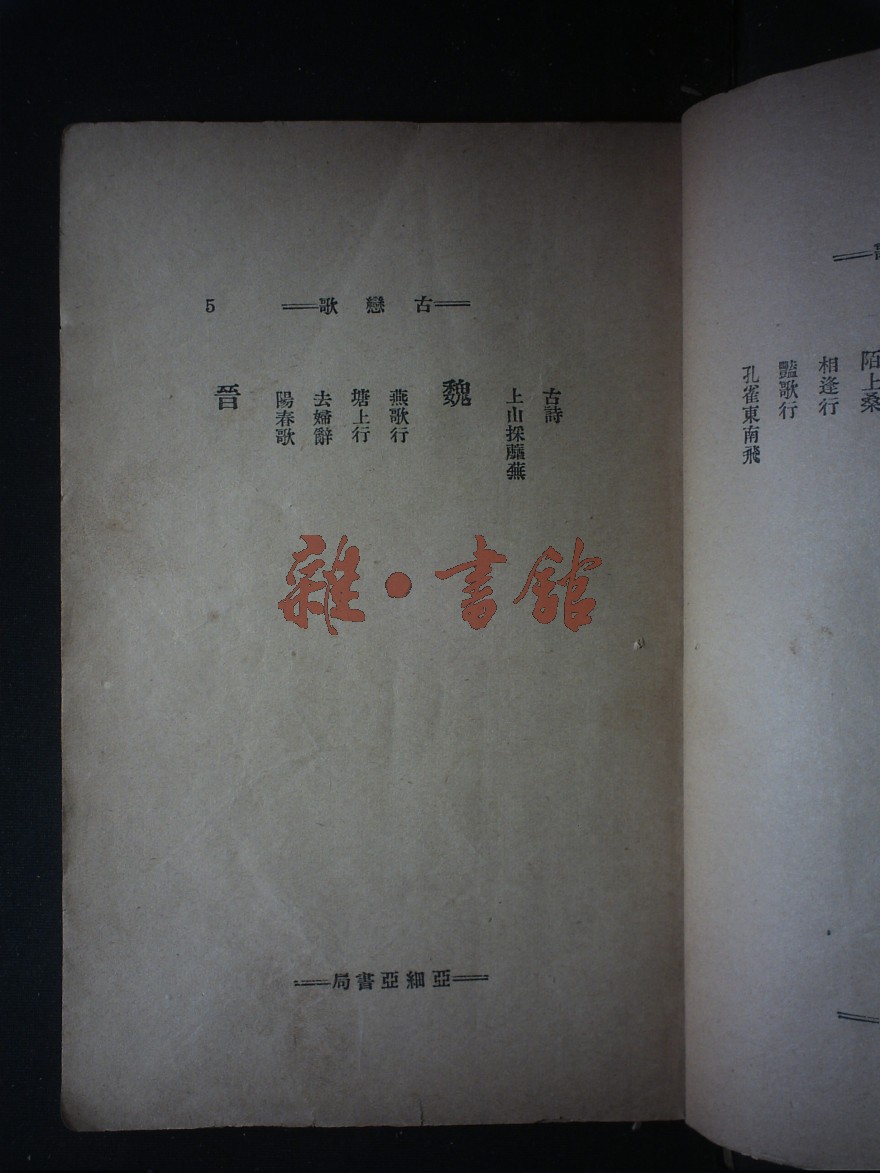 陌上桑
相逢行
豔歌行
孔雀東南飛
古戀歌
5
古詩
上山採蘼蕪
魏
燕歌行
塘上行
去婦辭
陽春歌
晉
亞細亞書局
雜·書館